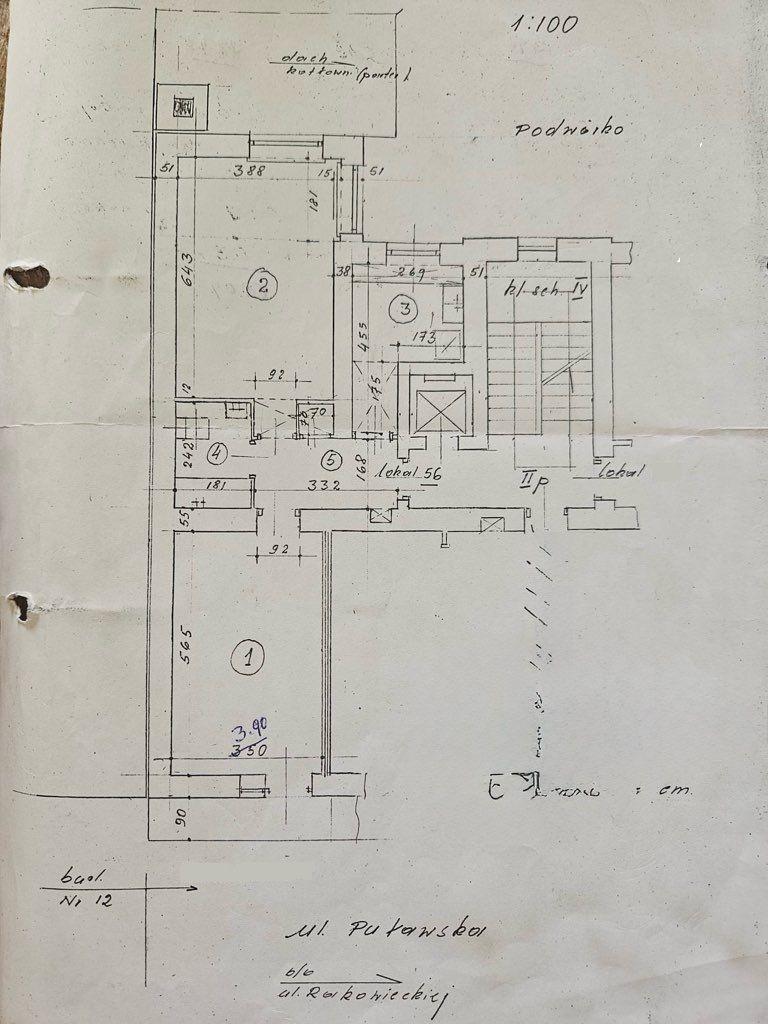 1:100
dach
kotłowni (parter)
Podwórko
51
388
15
51
181
643
2
38
269
51
kl. sch. IV
3
455
173
92
175
12
70
70
4
242
5
168
lokal 56
II p
lokal
181
332
55
92
1
565
3.90
350
cm
90
bud.
Nr 12
ul. Puławska
ul. Rakowieckiej